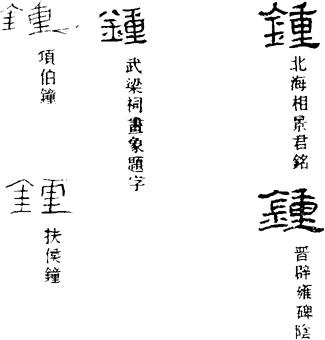 鍾
北海相景君銘
鍾
晉辟雍碑陰
鍾
武梁祠畫象題字
鍾
項伯鐘
鍾
扶侯鐘